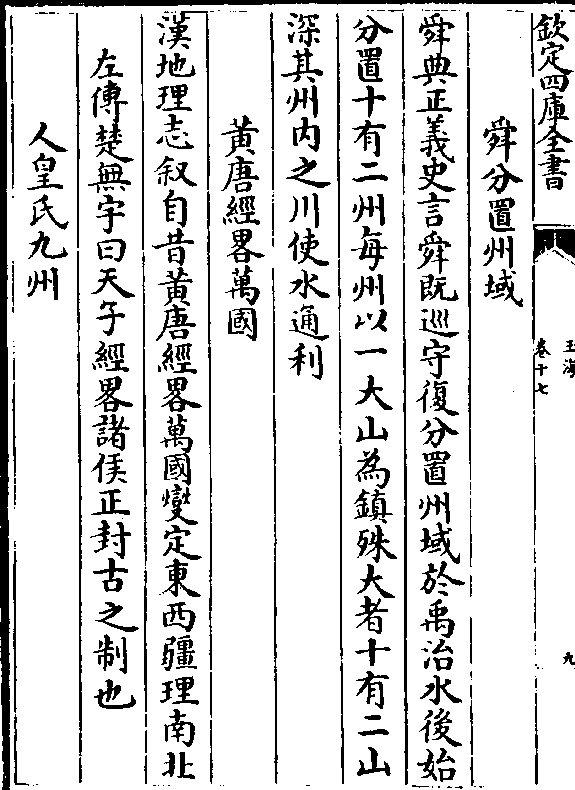 欽定四庫全書
玉海
卷十七
九
舜分置州域
舜典正義史言舜既巡守復分置州域於禹治水後始
分置十有二州每州以一大山為鎮殊大者十有二山
深其州内之川使水通利
黄唐經畧萬國
漢地理志叙自昔黄唐經畧萬國燮定東西疆理南北
左傳楚無宇曰天子經畧諸侯正封古之制也
人皇氏九州